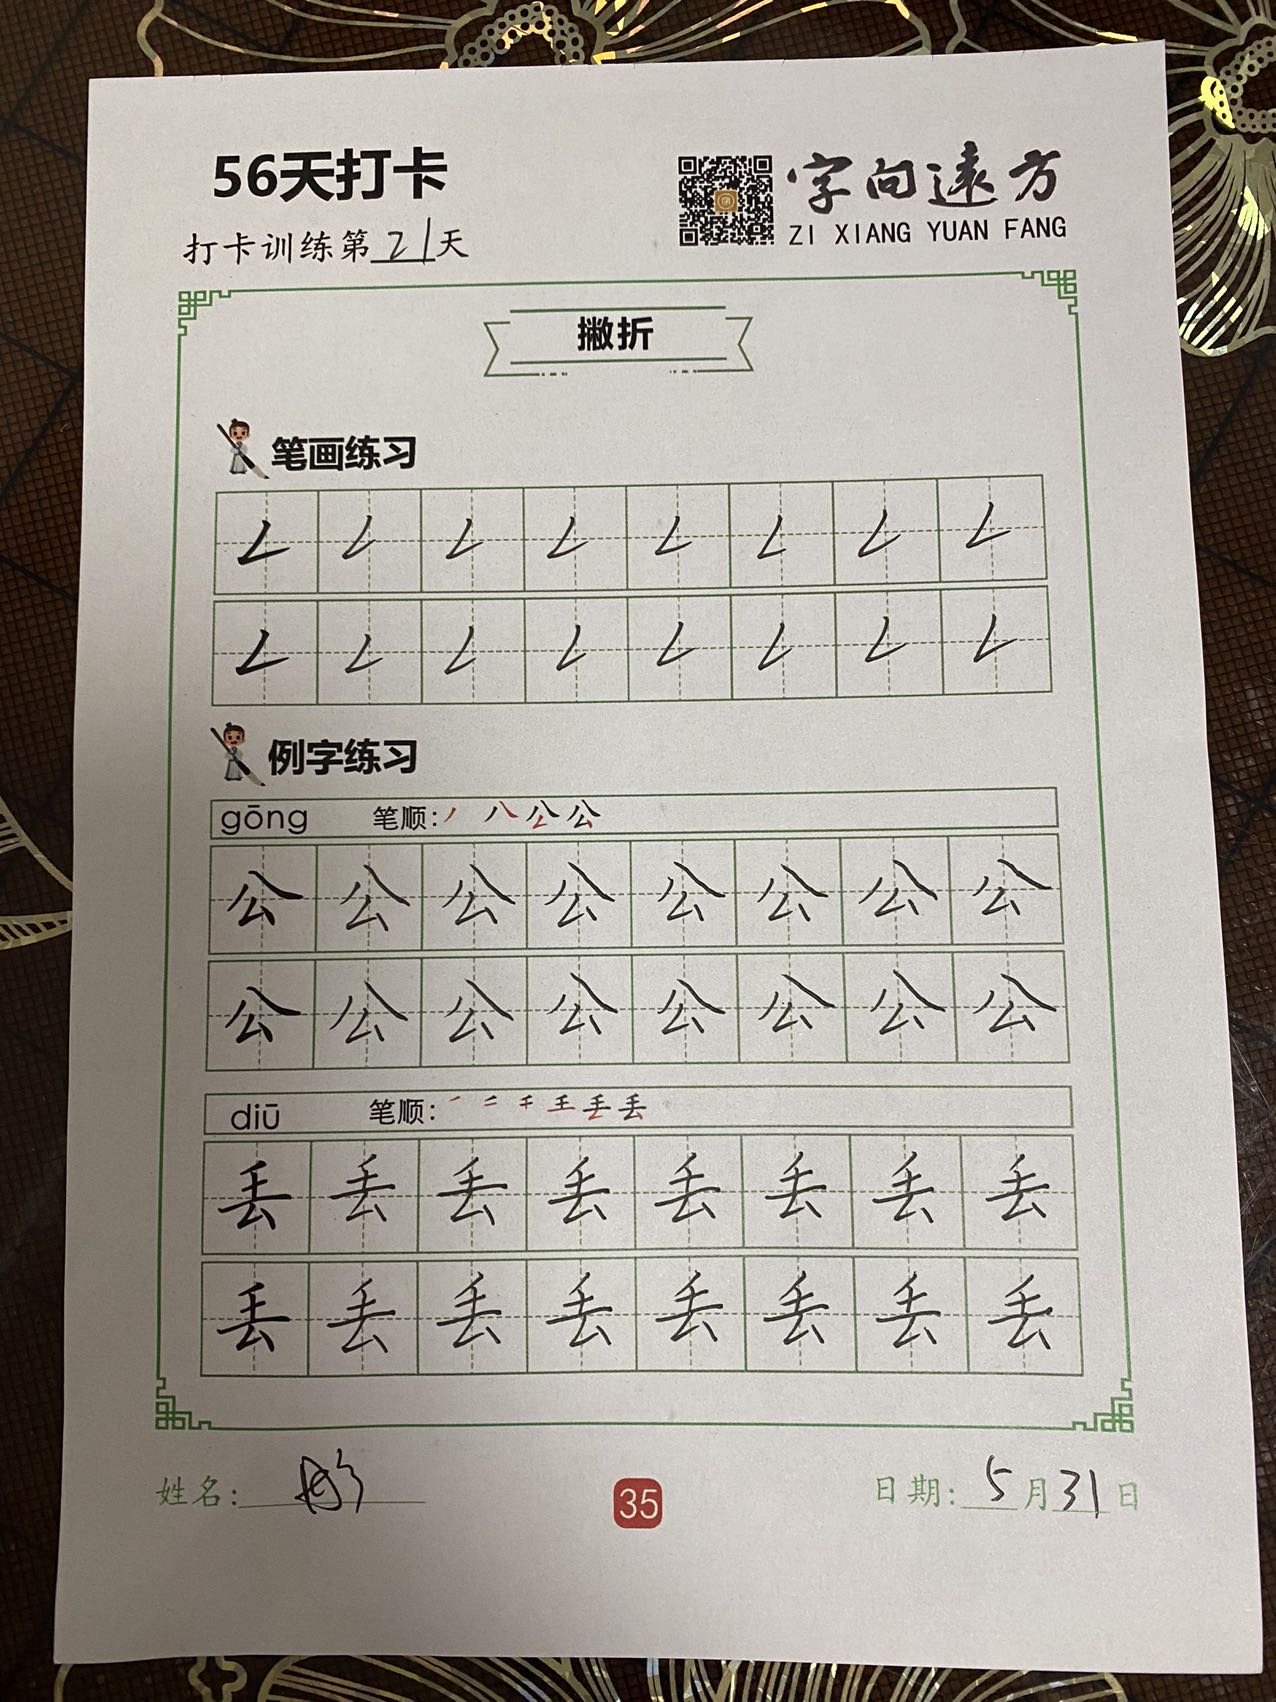 56天打卡
字向远方
ZI XIANG YUAN FANG
打卡训练第21天
撇折
笔画练习
例字练习
gōng 笔顺:
公 公 公 公 公 公 公 公
公 公 公 公 公 公 公 公
diū 笔顺:
丢 丢 丢 丢 丢 丢 丢 丢
丢 丢 丢 丢 丢 丢 丢 丢
姓名:
35
日期: 5月31日